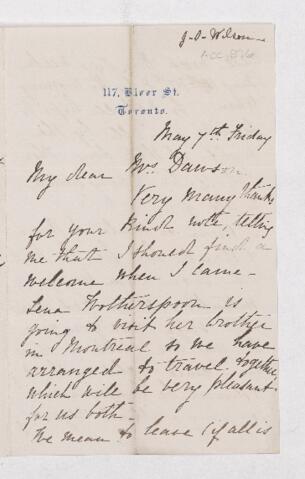 J-O-Wilson
117, Bloor St.
Toronto.
May 7th Friday
My dear Mrs Dawson
Very many thanks
for your kind note, telling
me that I should find a
welcome when I came -
Lena Wotherspoon is
going to visit her brother
in Montreal so we have
arranged to travel together
which will be very pleasant
for us both -
We mean to leave (if all is